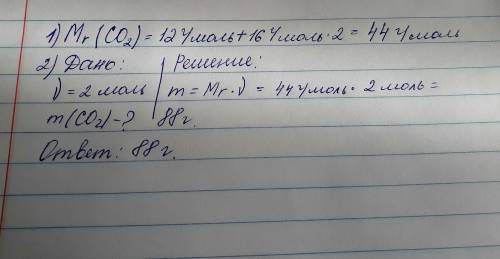 1) Mr (CO2) = 12 г/моль + 16 г/моль · 2 = 44 г/моль
2) Дано: Решение:
ν = 2 моль m = Mr · ν = 44 г/моль · 2 моль =
m(CO2) - ? 88 г.
Ответ: 88 г.